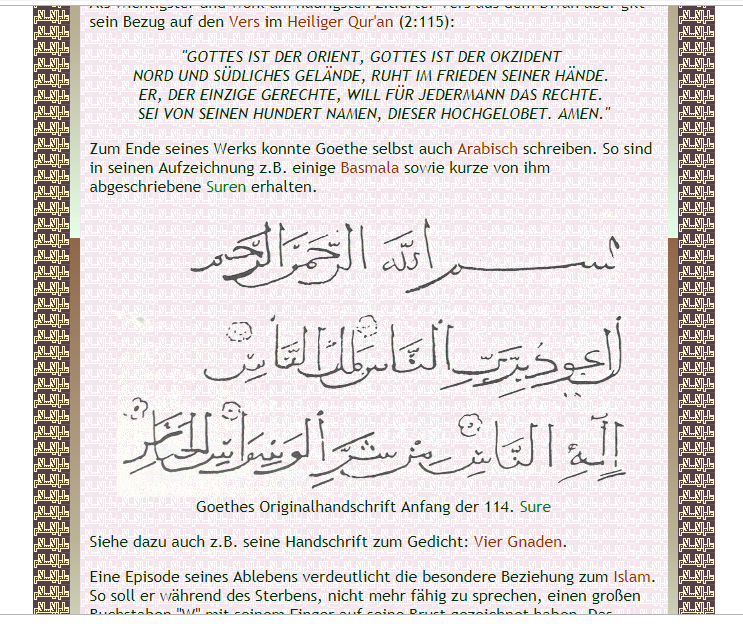 Als wichtigster und wohl am häufigsten zitierter Vers aus dem Diwan aber gilt
sein Bezug auf den Vers im Heiliger Qur'an (2:115):
"GOTTES IST DER ORIENT, GOTTES IST DER OKZIDENT
NORD UND SÜDLICHES GELÄNDE, RUHT IM FRIEDEN SEINER HÄNDE.
ER, DER EINZIGE GERECHTE, WILL FÜR JEDERMANN DAS RECHTE.
SEI VON SEINEN HUNDERT NAMEN, DIESER HOCHGELOBET. AMEN."
Zum Ende seines Werks konnte Goethe selbst auch Arabisch schreiben. So sind
in seinen Aufzeichnung z.B. einige Basmala sowie kurze von ihm
abgeschriebene Suren erhalten.
بسم الله الرحمن الرحيم
اعوذ برب الناس ملك الناس
اله الناس من شر الوسواس الخناس
Goethes Originalhandschrift Anfang der 114. Sure
Siehe dazu auch z.B. seine Handschrift zum Gedicht: Vier Gnaden.
Eine Episode seines Ablebens verdeutlicht die besondere Beziehung zum Islam.
So soll er während des Sterbens, nicht mehr fähig zu sprechen, einen großen
Buchstaben "W" mit seinem Finger auf seine Brust gezeichnet haben. Das